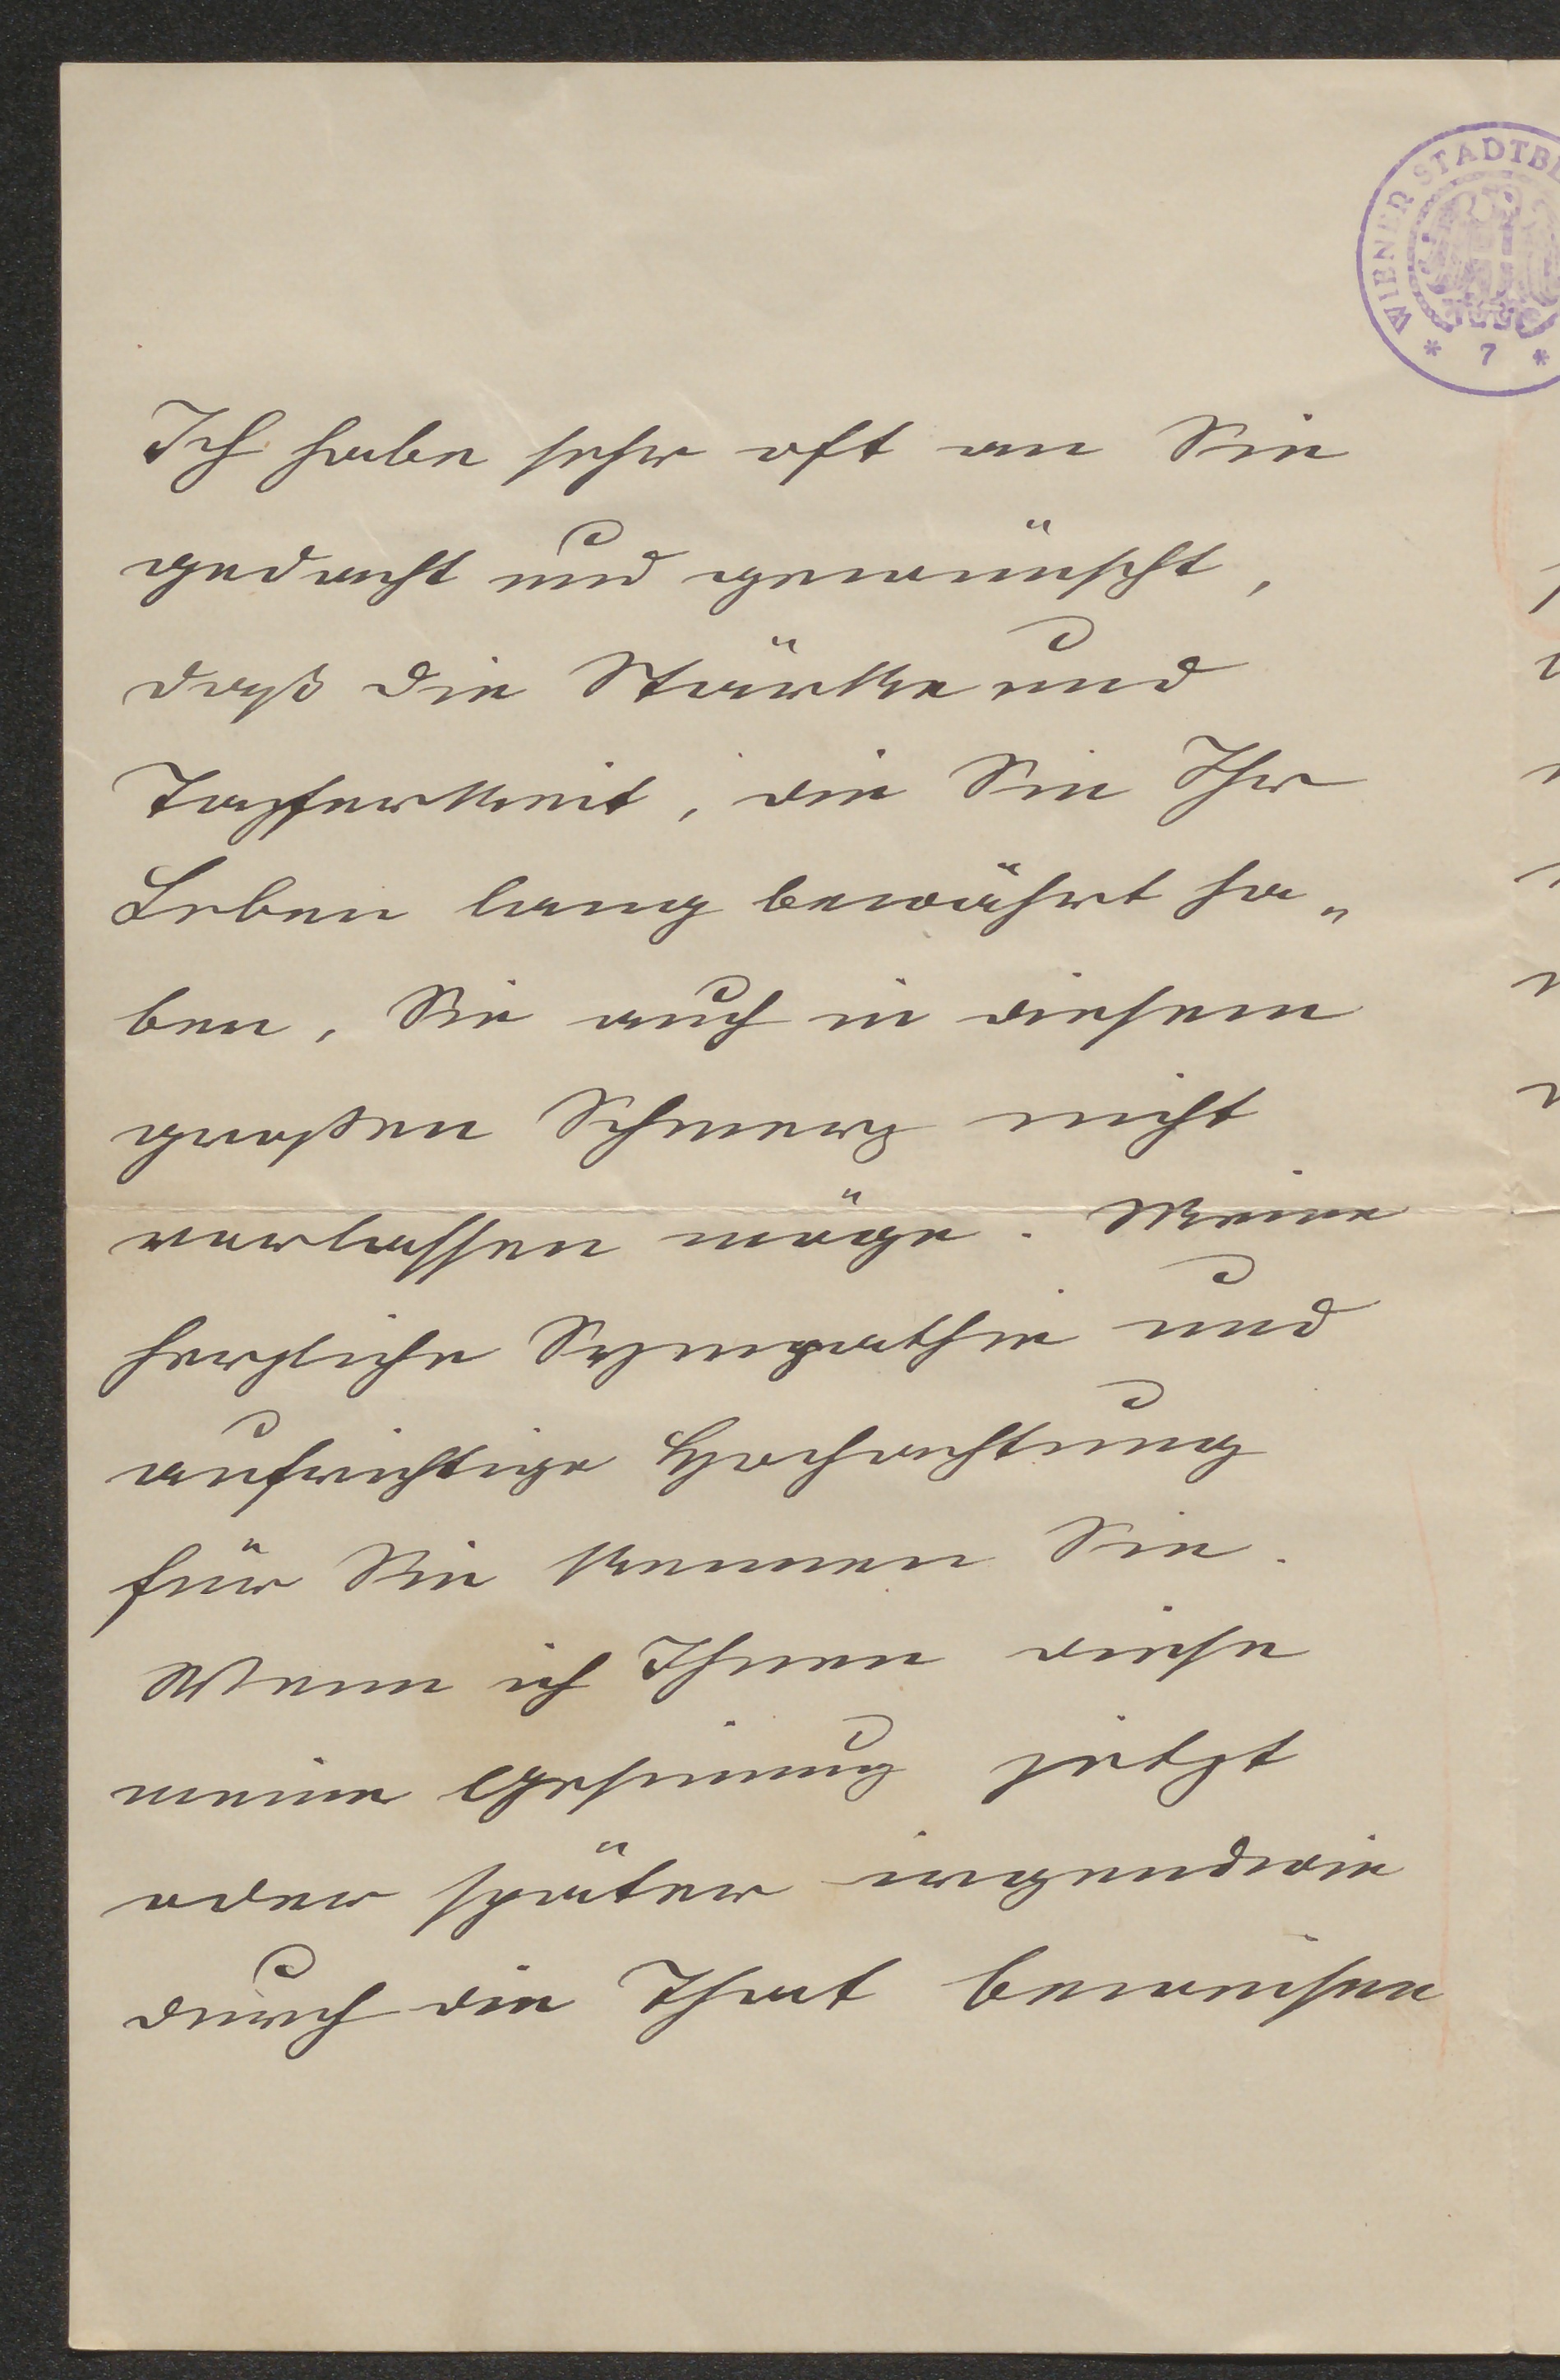 WIENER STADTB
* 7 *
Ich habe sehr oft an Sie
gedacht und gewünscht,
daß die Stärke und
Tapferkeit, die Sie Ihr
Leben lang bewährt ha„
ben, Sie auch in diesem
großen Schmerz nicht
verlassen möge. Meine
herzliche Sympathie und
aufrichtige Hochachtung
für Sie kennen Sie.
Wenn ich Ihnen diese
meine Gesinung jetzt
oder später irgendwie
durch die That beweisen